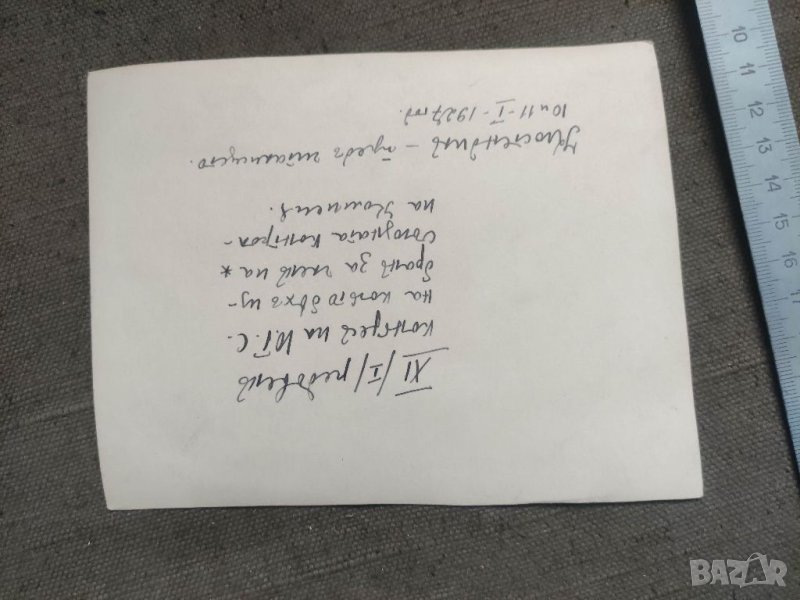 XI /I/ редовенъ
конгресъ на Ю.Г.С.
на който бѣхъ из-
бранъ за членъ на *
Союзната контрол-
на комисия.
Кюстендилъ – предъ читалището.
10 и 11 - I - 1927 год.
10
11
12
13
14
15
16
17
BAZAR